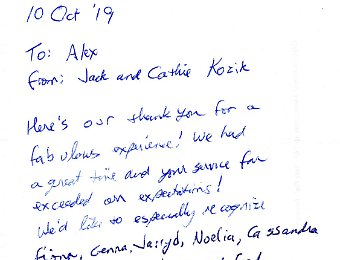 10 Oct '19
To: Alex
From: Jack and Cathie Kozik
Here's our thank you for a
fabulous experience! We had
a great time and your service far
exceeded our expectations!
We'd like to especially recognize
Fiona, Genna, Jarryd, Noelia, Cassandra